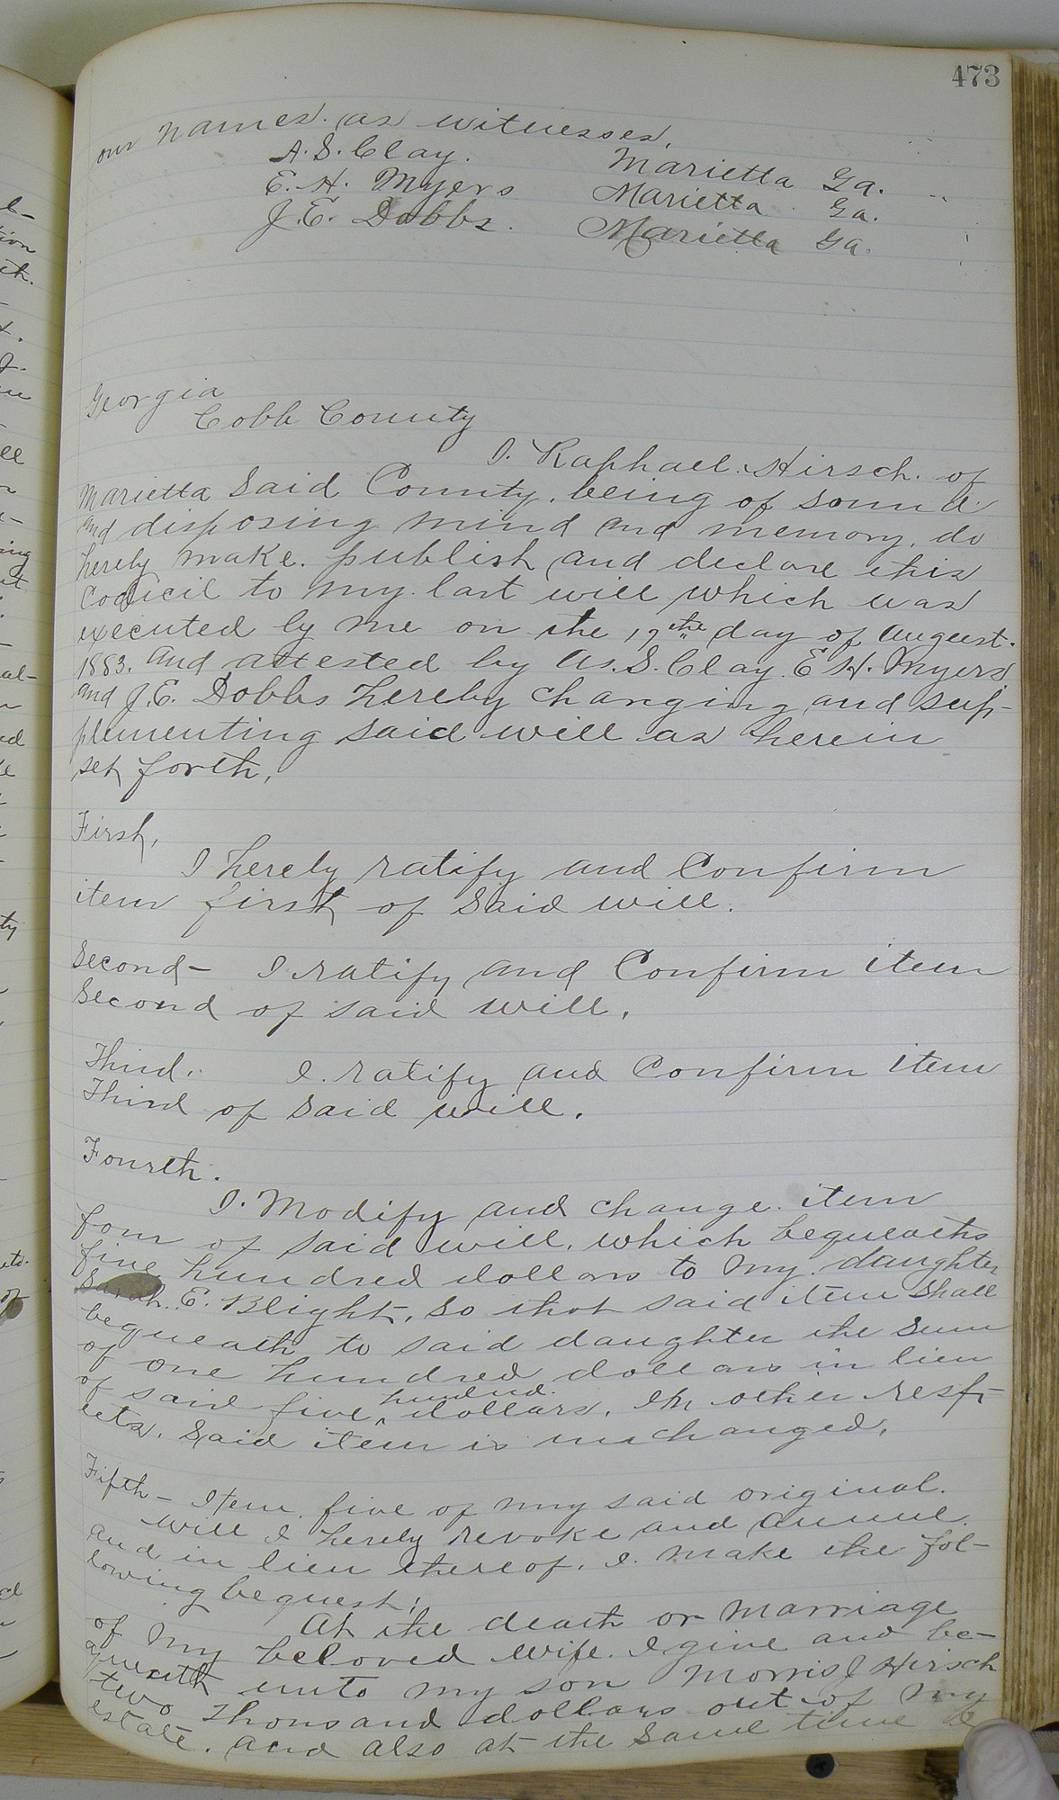 473
our names as witnesses,
A. S. Clay. Marietta Ga.
E. H. Myers Marietta Ga.
J. E. Dobbs. Marietta Ga.
Georgia
Cobb County
I. Raphael Hirsch. of
Marietta Said County, being of sound
and disposing mind and memory, do
hereby make, publish and declare this
Codicil to my last will which was
executed by me on the 17the day of August.
1883. and attested by as. S. Clay. E H. Myers
and J. E. Dobbs hereby changing and sup-
plimenting said will as herein
set forth,
First,
I hereby ratify and Confirm
item first of said will.
Second - I ratify and Confirm item
Second of said will,
Third. I. ratify and Confirm item
Third of said will.
Fourth.
I. Modify and change item
four of said will, which bequeaths
five hundred dollars to my daughter
Sarah. E. Blight, so that said item shall
bequeath to said daughter the sum
of one hundred dollars in lieu
of said five hundred dollars. In other resp-
ects. Said item is unchanged,
Fifth - Item five of my said original.
will I hereby revoke and annul.
and in lieu thereof. I. make the fol-
lowing bequest;
At the death or marriage
of my beloved wife. I give and be-
queath unto my son Morris J Hirsch
two thousand dollars out of my
estate. and also at the same time